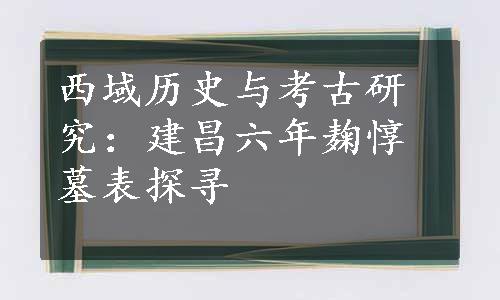 西域历史与考古研
究：建昌六年麴惇
墓表探寻